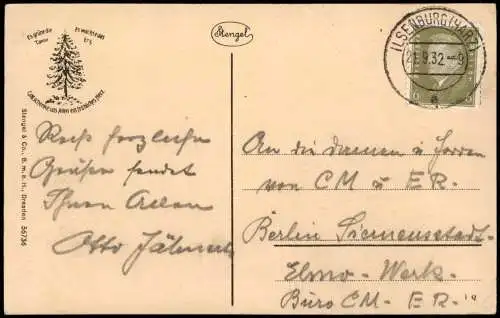 Es grüne die Tanne
Es wachse das Erz
Gott schenke uns allen ein fröhliches Herz
Stengel
ILSENBURG (HARZ)
21.9.32
6
Stengel & Co., G. m. b. H., Dresden 56736
Recht herzliche
Grüßen sendet
Ihnen Allen
Otto
An die Damen u Herren
von CM u ER.
Berlin Siemensstadt
Elmo-Werk-
Büro CM- ER.